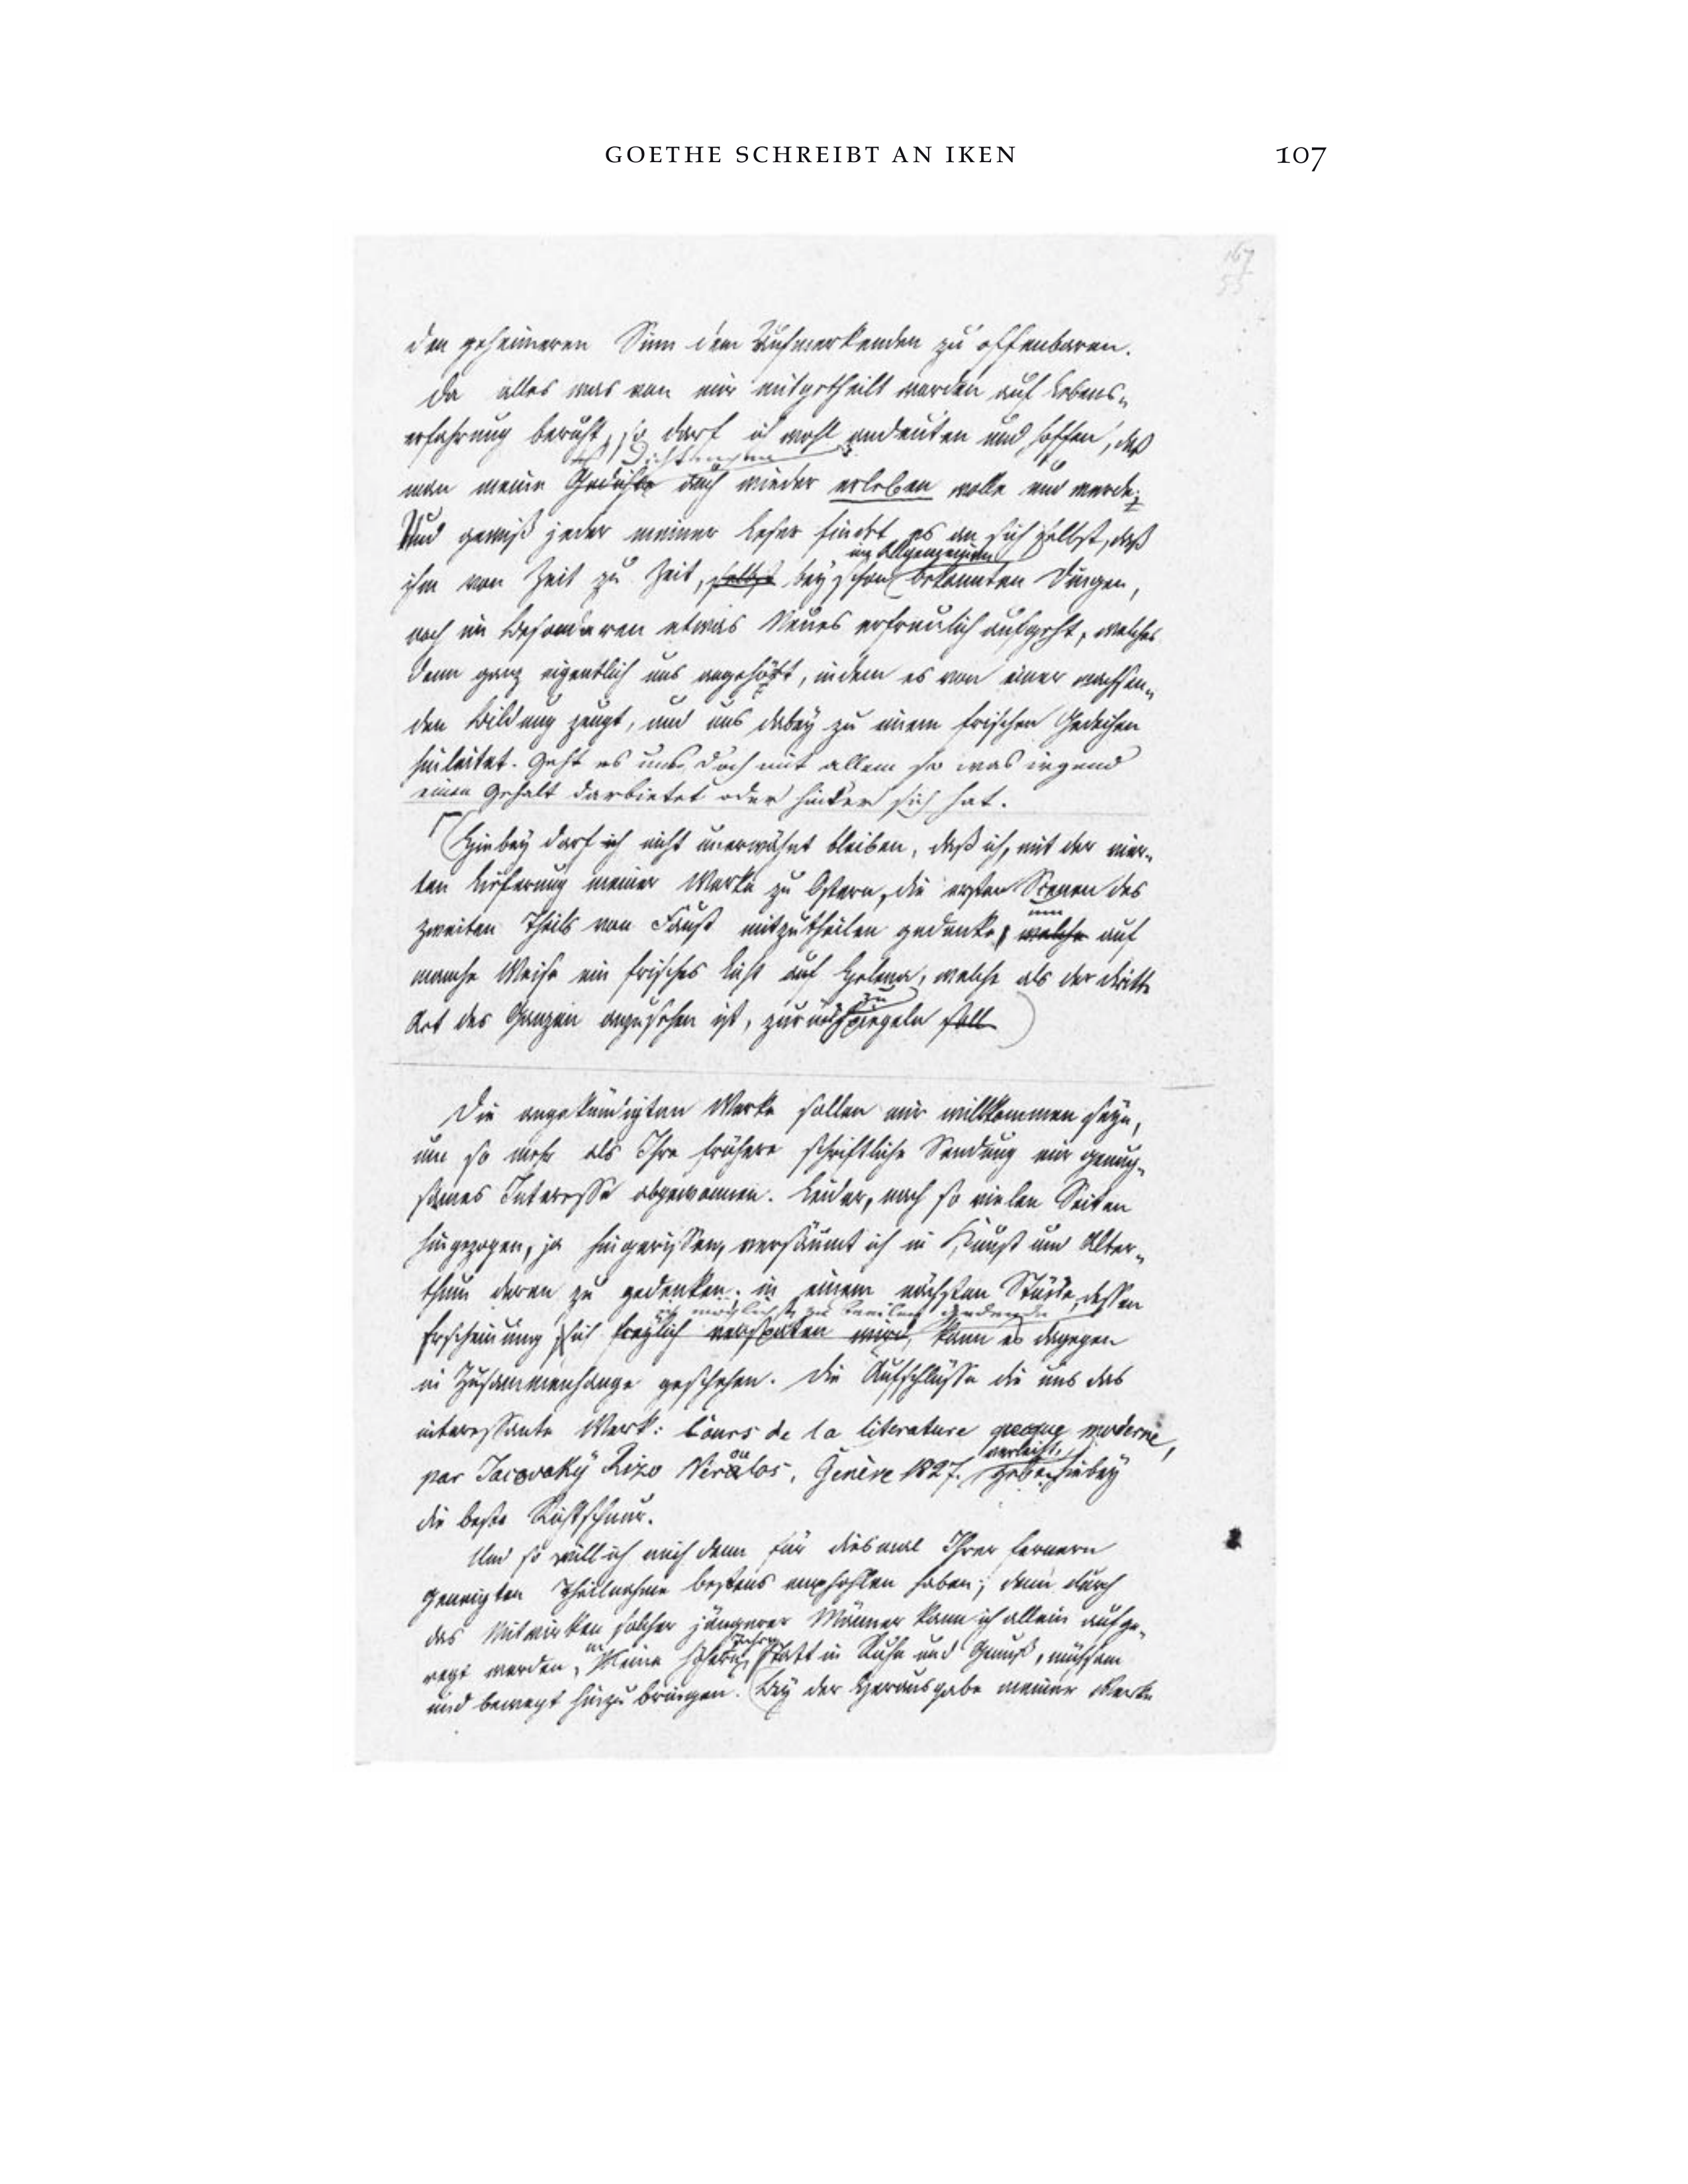 GOETHE SCHREIBT AN IKEN 107
den geheimeren Sinn dem Aufmerkenden zu offenbaren.
Da alles was von mir mitgetheilt worden auf Lebens-
erfahrung beruht, so darf ich wohl andeuten und hoffen, daß
Dichtungen
man meine Gedichte auch wieder erleben wolle und werde;
Und gewiß jeder meiner Leser findet es an sich selbst, daß
im Allgemeinen
ihm von Zeit zu Zeit, selbst bey schon bekannten Dingen,
noch im Besonderen etwas Neues erfreulich aufgeht, welches
denn ganz eigentlich uns angehört, indem es von einer wachsen-
den Bildung zeugt, und uns dabey zu einem frischen Gedeihen
hinleitet. Geht es uns doch mit allem so was irgend
einen Gehalt darbietet oder hinter sich hat.
Hiebey darf ich nicht unerwähnt bleiben, daß ich, mit der vier-
ten Lieferung meiner Werke zu Ostern, die ersten Scenen des
um
zweiten Theils von Faust mitzutheilen gedenke, welche auf
manche Weise ein frisches Licht auf Helena, welche als der dritte
zu
Act des Ganzen anzusehen ist, zurückspiegeln soll
Die angekündigten Werke sollen mir willkommen seyn,
um so mehr als Ihre frühere schriftliche Sendung mir genug-
sames Interesse abgewonnen. Leider, nach so vielen Seiten
hingezogen, ja hingerissen, versäumt ich in Kunst und Alter-
thum deren zu gedenken; in einem nächsten Stücke, dessen
ich möglichst zu beeilen gedenke
Erscheinung sich freylich verspäten wird, kann es dagegen
in Zusammenhange geschehen. Die Aufschlüsse die uns das
interessante Werk: Cours de la literature grecque moderne,
ou verleiht,
par Jacovaky Rizo Néralos, Genève 1827. geben hiebey
die beste Richtschnur.
Und so will ich mich denn für diesmal Ihrer fernern
geneigten Theilnahme bestens empfohlen haben; denn durch
das Mitwirken solcher jüngerer Männer kann ich allein aufge-
Jahre
regt werden, Meine höhern, statt in Ruhe und Genuß, mühsam
und bewegt hinzubringen. Bey der Herausgabe meiner Werke